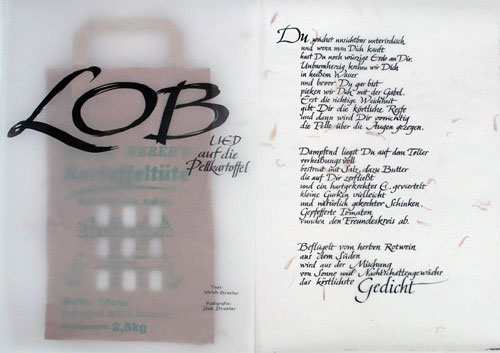 LOB
LIED
auf die
Pellkartoffel
WEBER'S
Kartoffeltüte
2,5kg
Text:
Ulrich Straeter
Kalligrafie:
Du wächst unsichtbar unterirdisch
und wenn man Dich kauft
hast Du noch würzige Erde an Dir.
Unbarmherzig kochen wir Dich
in heißem Wasser
und bevor Du gar bist
pieken wir Dich mit der Gabel.
Erst die richtige Weichheit
gibt Dir die köstliche Reife
und dann wird Dir vorsichtig
die Pelle über die Augen gezogen.
Dampfend liegst Du auf dem Teller
verheißungsvoll
bestreut mit Salz, dazu Butter
die auf Dir zerfließt
und ein hartgekochtes Ei, geviertelt
kleine Gurken vielleicht
und natürlich gekochter Schinken.
Gepfefferte Tomaten
runden den Freundeskreis ab.
Beflügelt vom herben Rotwein
aus dem Süden
wird aus der Mischung
von Sonne und Nachtschattengewächs
das köstlichste Gedicht